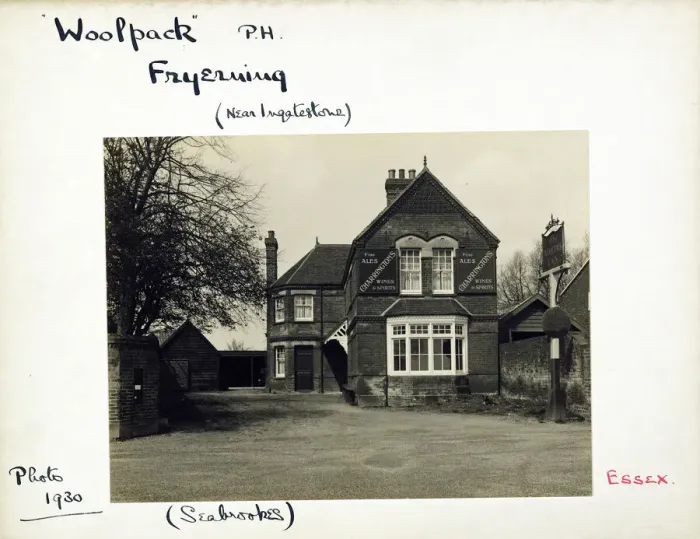 "Woolpack" P.H.
Fryerning
(Near Ingatestone)
Fine
ALES
CHARRINGTON'S
WINES
& SPIRITS
Fine
ALES
CHARRINGTON'S
WINES
& SPIRITS
Photo
1930
(Seabrookes)
ESSEX.